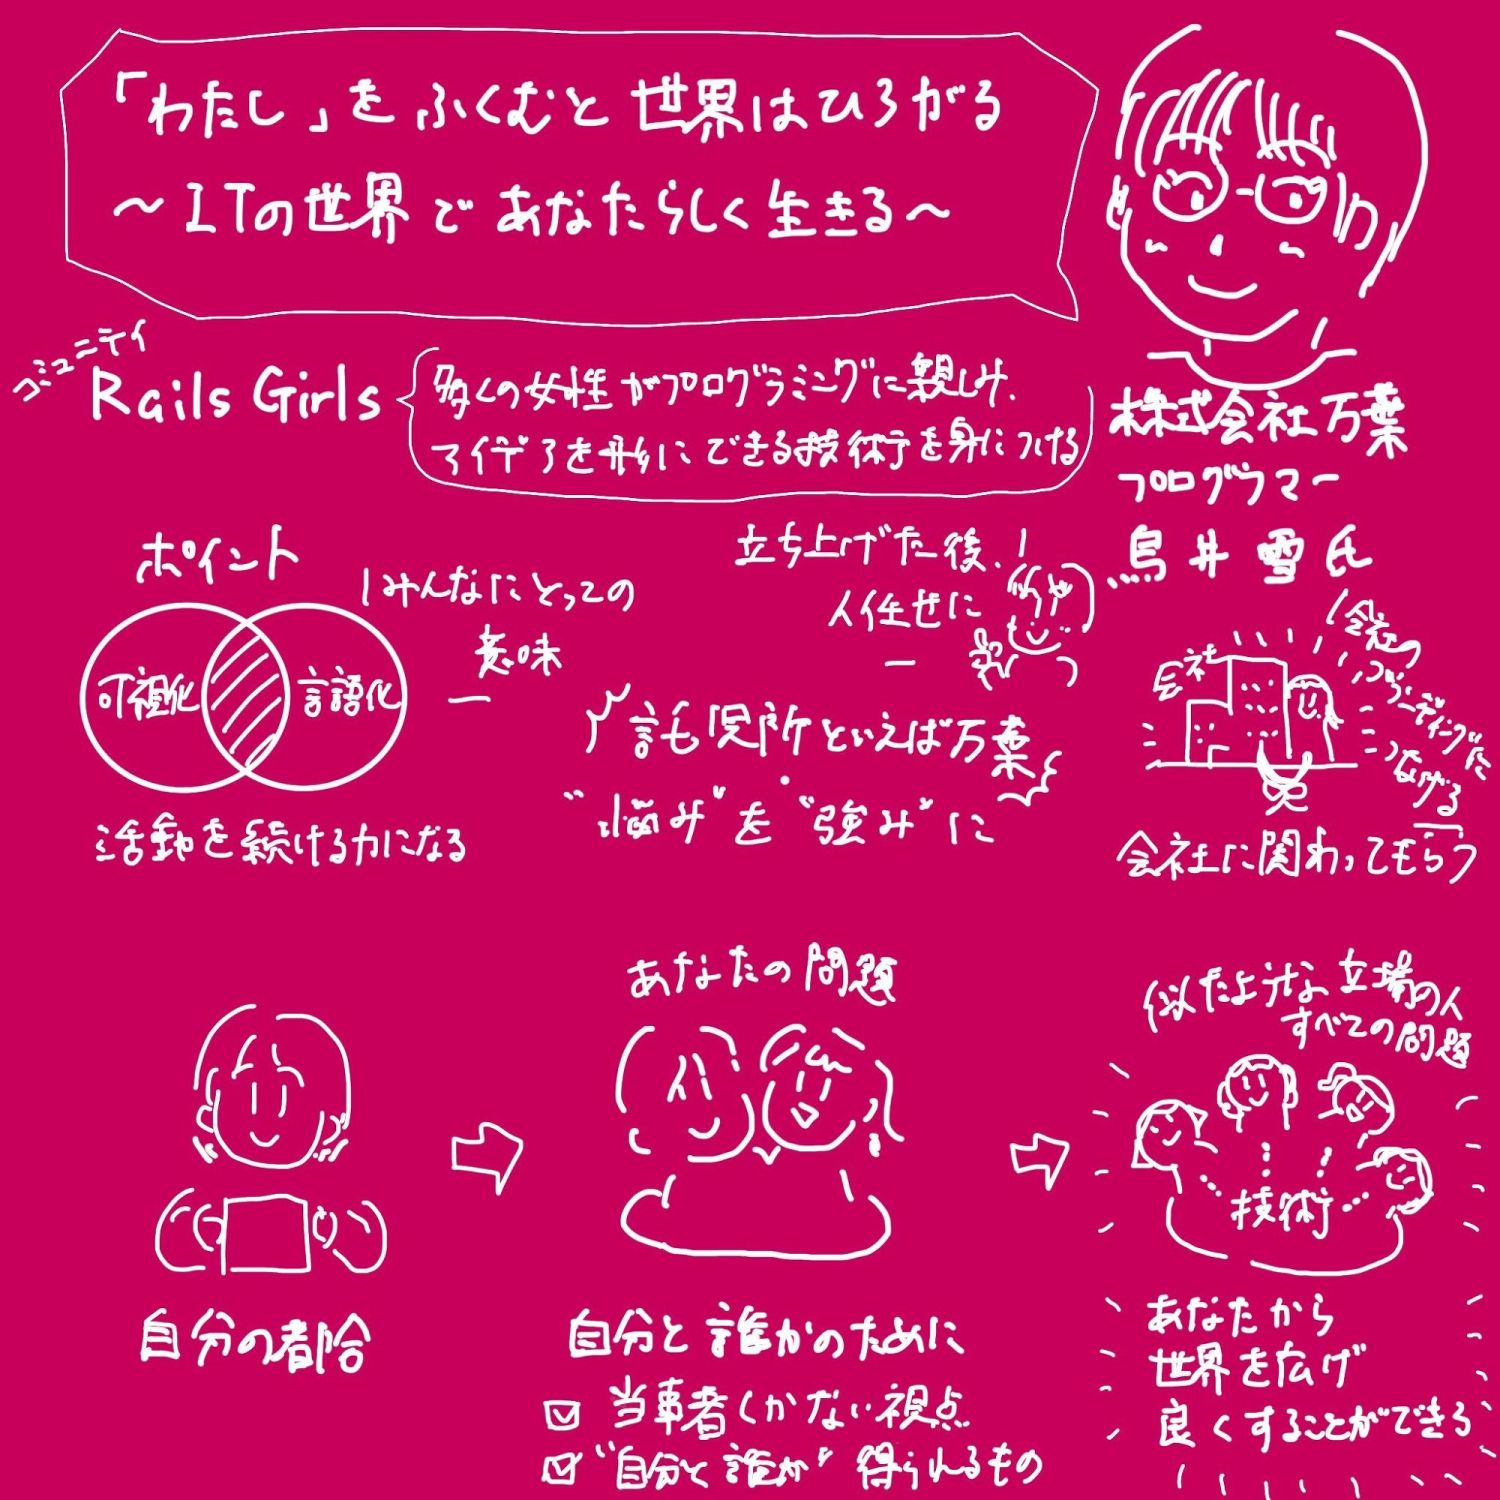 「わたし」をふくむと世界はひろがる
～ITの世界であなたらしく生きる～
コミュニティ
Rails Girls
多くの女性がプログラミングに親しみ、
アイデアを形にできる技術を身につける
株式会社万葉
プログラマー
鳥井雪氏
ポイント
可視化
言語化
みんなにとっての
意味
活動を続ける力になる
立ち上げた後、
人任せに
託児所といえば万葉
"悩み"を"強み"に
会社
会社の
ブランディングに
つなげる
会社に関わってもらう
自分の都合
あなたの問題
自分と誰かのために
当事者しかない視点
"自分と誰か"得られるもの
似たような立場の人
すべての問題
技術
あなたから
世界を広げ
良くすることができる